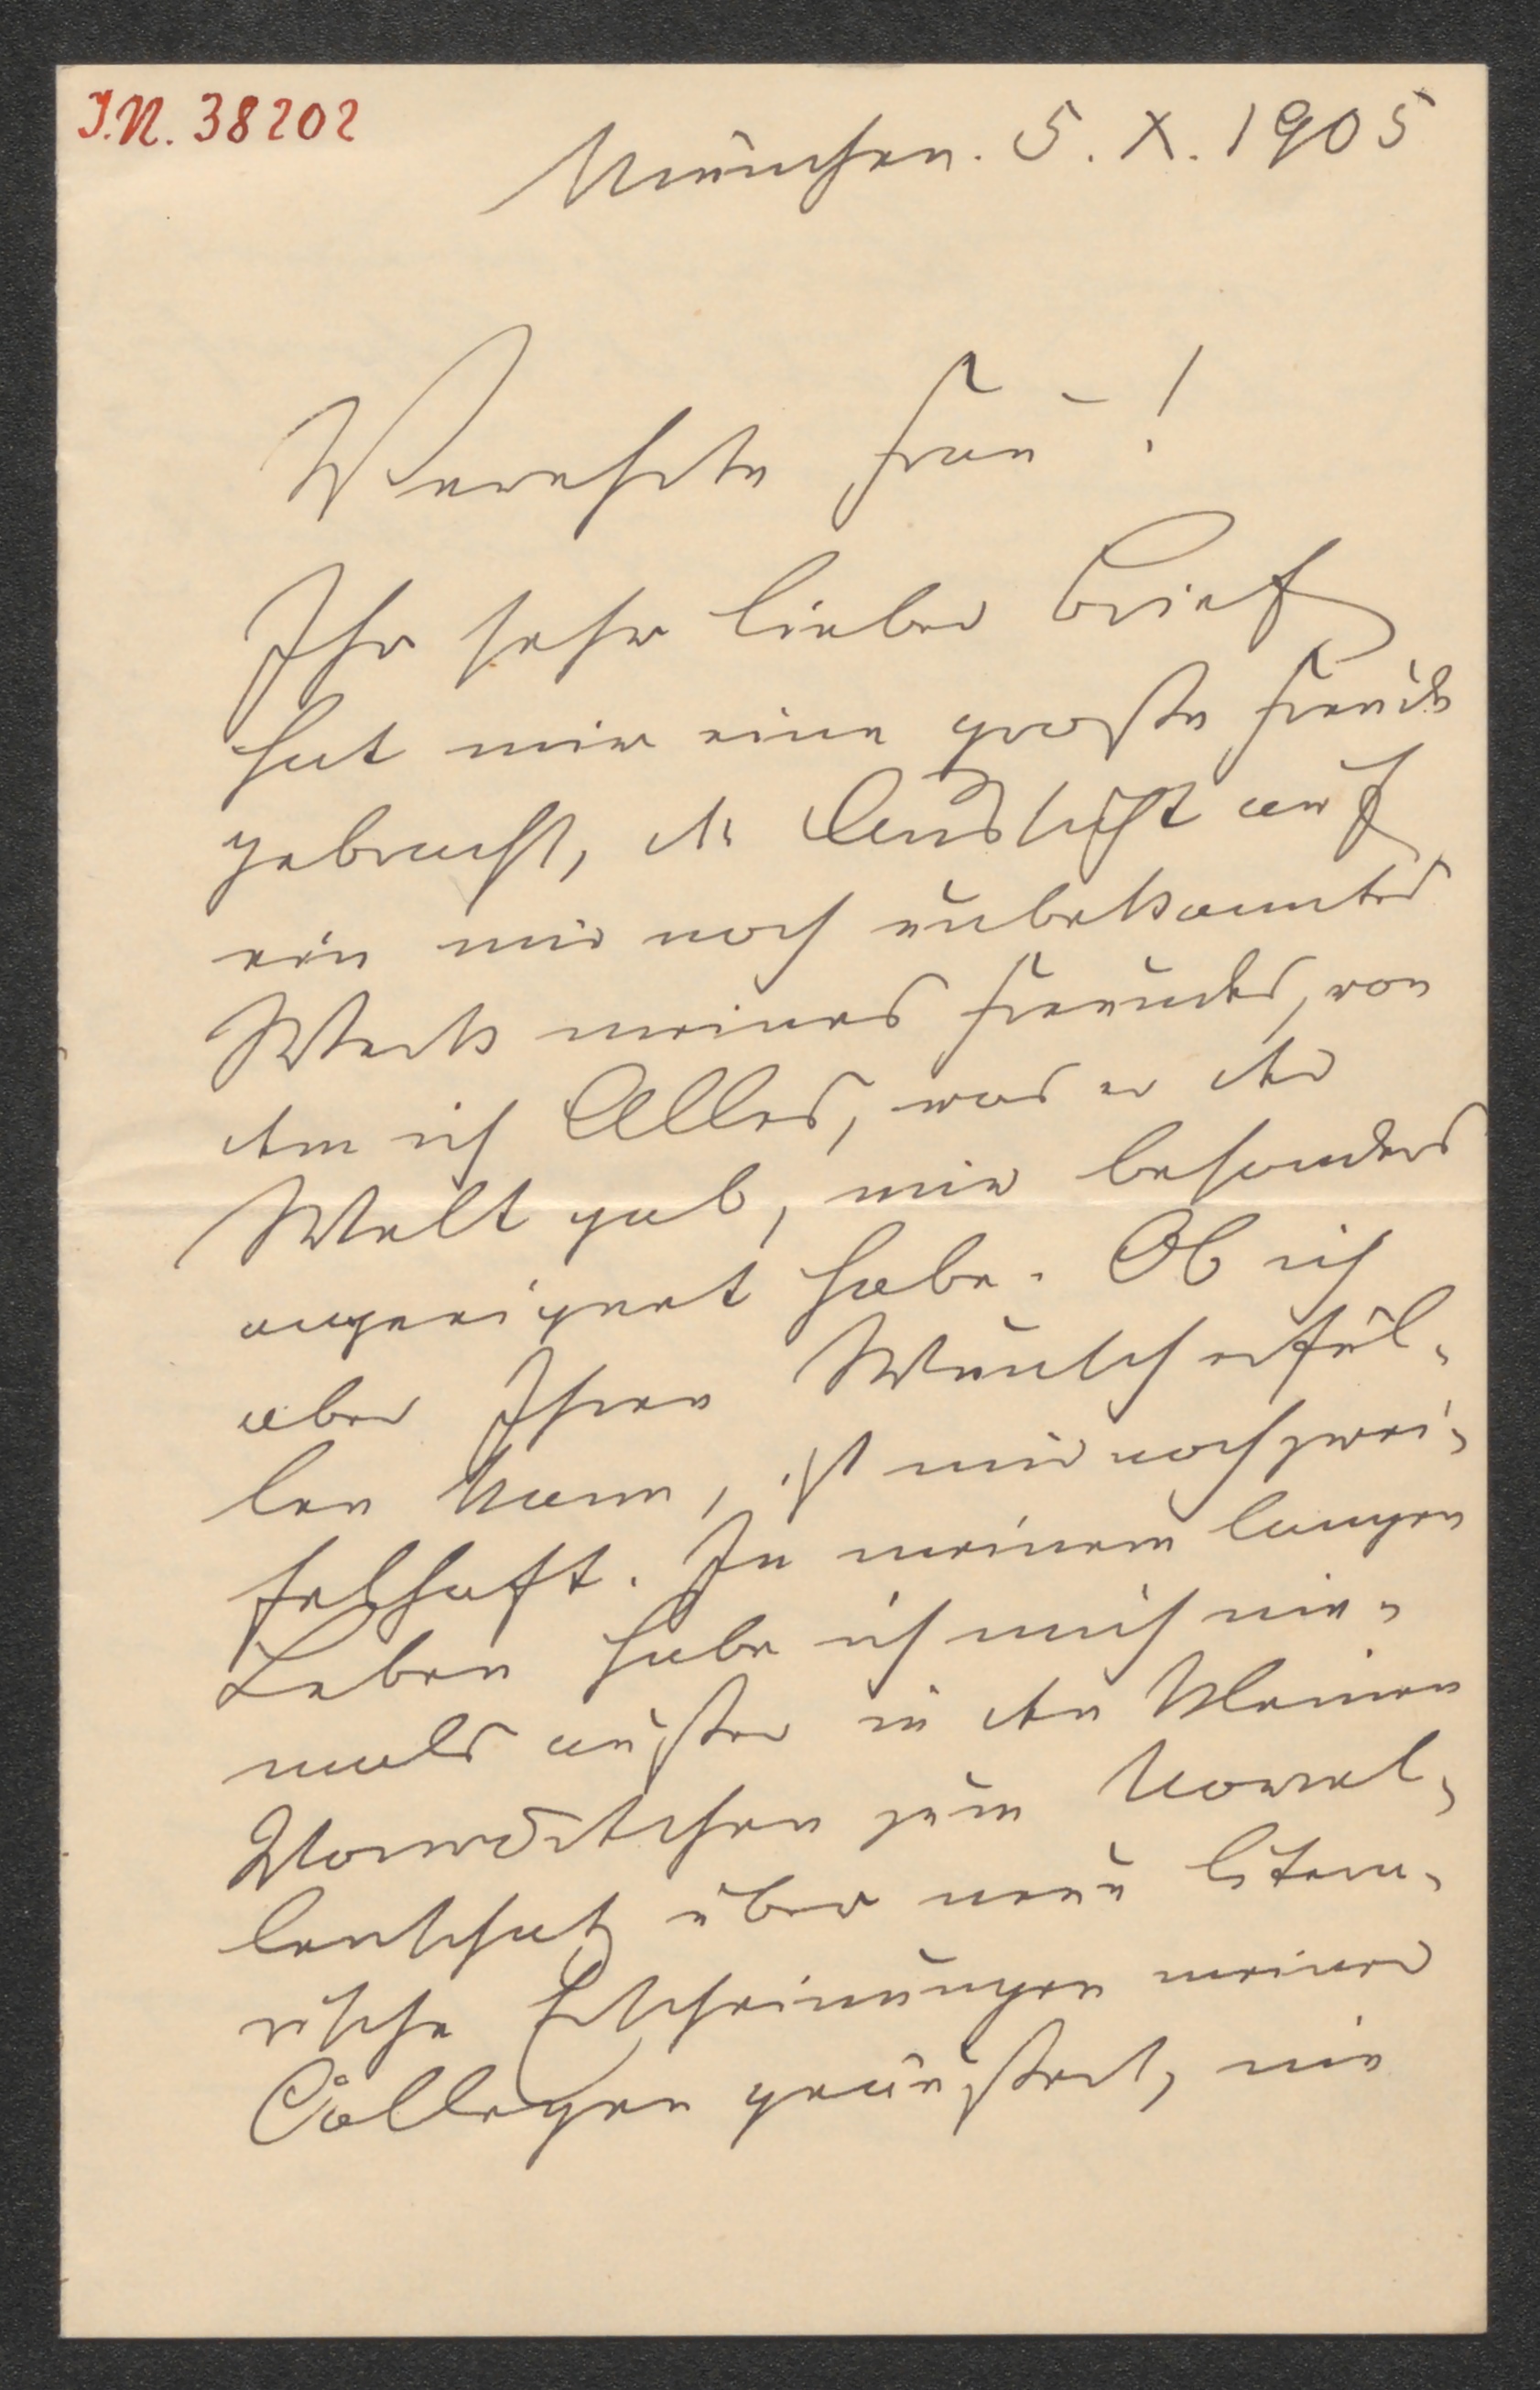 I.N. 38202
München. 5. X. 1905
Verehrte Frau!
Ihr sehr lieber Brief
hat mir eine große Freude
gebracht, die Aussicht auf
ein mir noch unbekanntes
Werk meines Freundes, von
dem ich Alles, was er der
Welt gab, mir besonders
angeeignet habe. Ob ich
aber Ihren Wunsch erfül-
len kann, ist mir noch zwei-
felhaft. In meinem langen
Leben habe ich mich nie-
mals außer in den kleinen
Vorwörtchen zum Novel-
lenschatz über neue litera-
rische Erscheinungen meiner
Collegen geäußert, nie